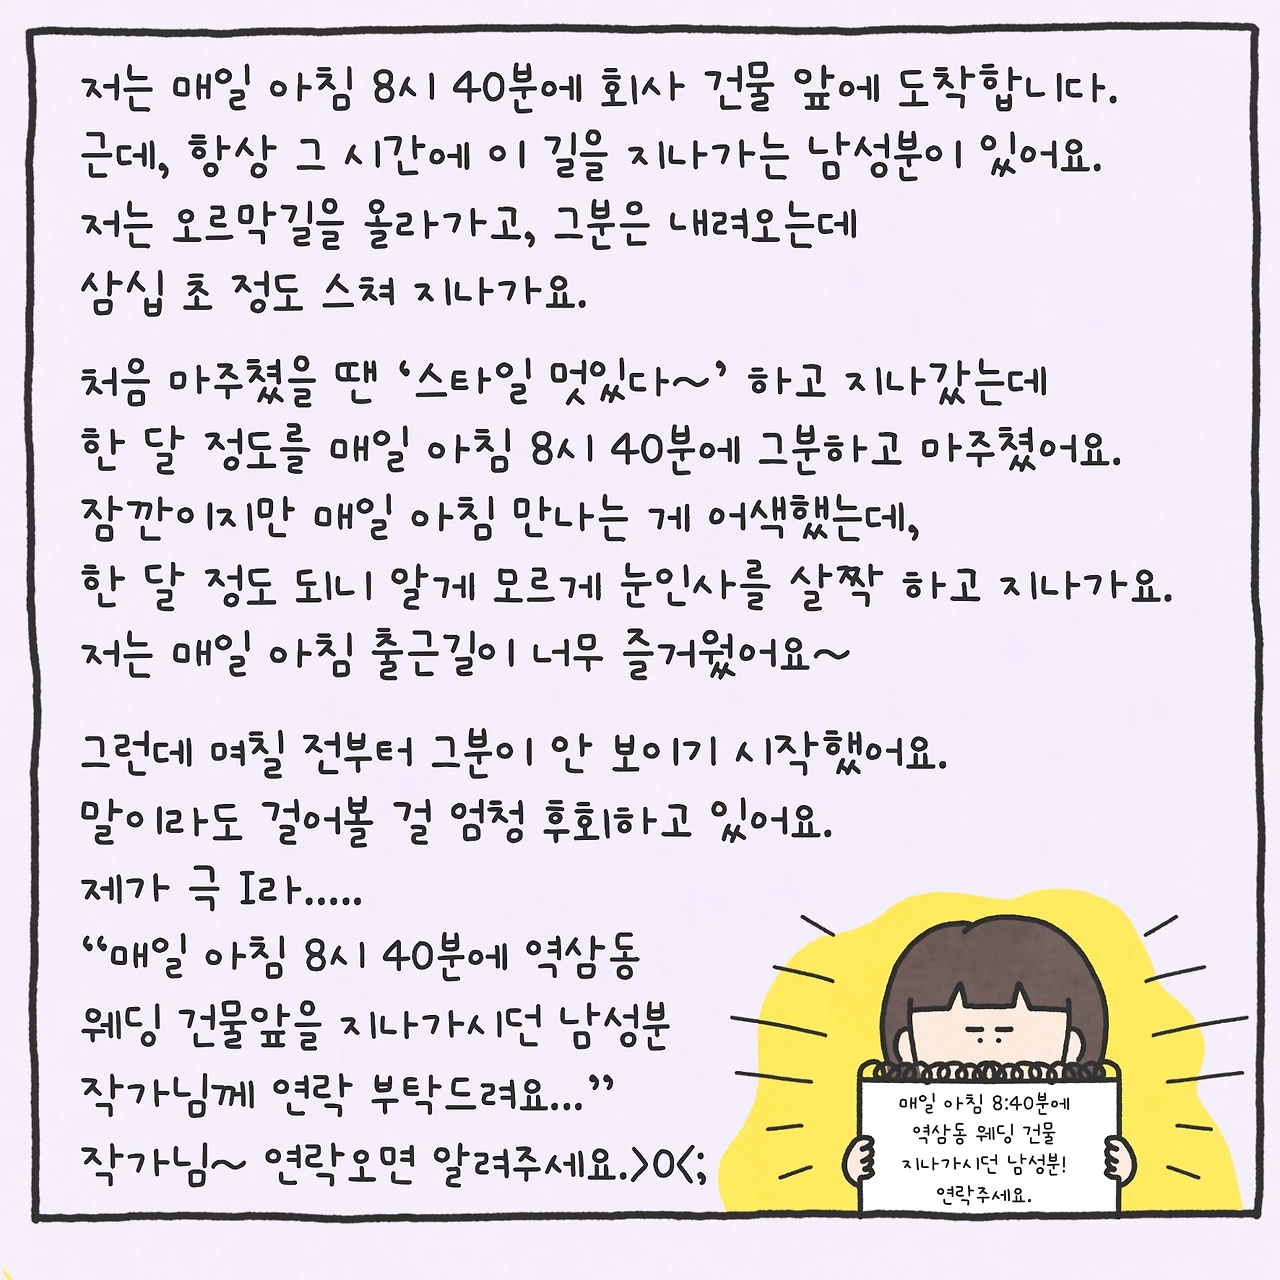 저는 매일 아침 8시 40분에 회사 건물 앞에 도착합니다.
근데, 항상 그 시간에 이 길을 지나가는 남성분이 있어요.
저는 오르막길을 올라가고, 그분은 내려오는데
삼십 초 정도 스쳐 지나가요.
처음 마주쳤을 땐 ‘스타일 멋있다~’ 하고 지나갔는데
한 달 정도를 매일 아침 8시 40분에 그분하고 마주쳤어요.
잠깐이지만 매일 아침 만나는 게 어색했는데,
한 달 정도 되니 알게 모르게 눈인사를 살짝 하고 지나가요.
저는 매일 아침 출근길이 너무 즐거웠어요~
그런데 며칠 전부터 그분이 안 보이기 시작했어요.
말이라도 걸어볼 걸 엄청 후회하고 있어요.
제가 극 I라.....
“매일 아침 8시 40분에 역삼동
웨딩 건물앞을 지나가시던 남성분
작가님께 연락 부탁드려요...”
작가님~ 연락오면 알려주세요.>0<;
매일 아침 8:40분에
역삼동 웨딩 건물
지나가시던 남성분!
연락주세요.